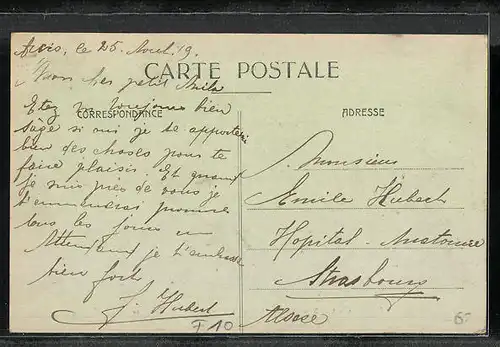 le 25. Avril. 19.
Mon cher petit Emile
CARTE POSTALE
CORRESPONDANCE
ADRESSE
Etez tu toujours bien
sage si oui je te apporterai
bien des choses pour te
faire plaisir. Et quand
je suis près de vous je
t'emmenerai promener
tous les jours
Attendant je t'embrasse
bien fort
J. Hubert
F10
Monsieur
Emile Hubert
Hopital - Anatomie
Strasbourg
Alsace